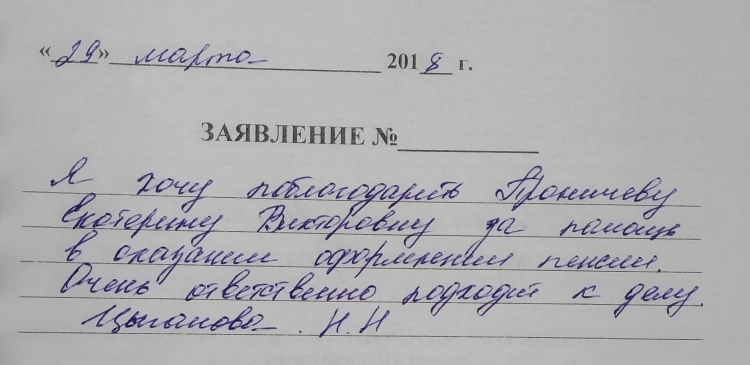 «29» марта 2018 г.
ЗАЯВЛЕНИЕ №
Я хочу поблагодарить Проничеву
Екатерину Викторовну за помощь
в оказании оформления пенсии.
Очень ответственно подходит к делу.
Цыганова Н.Н